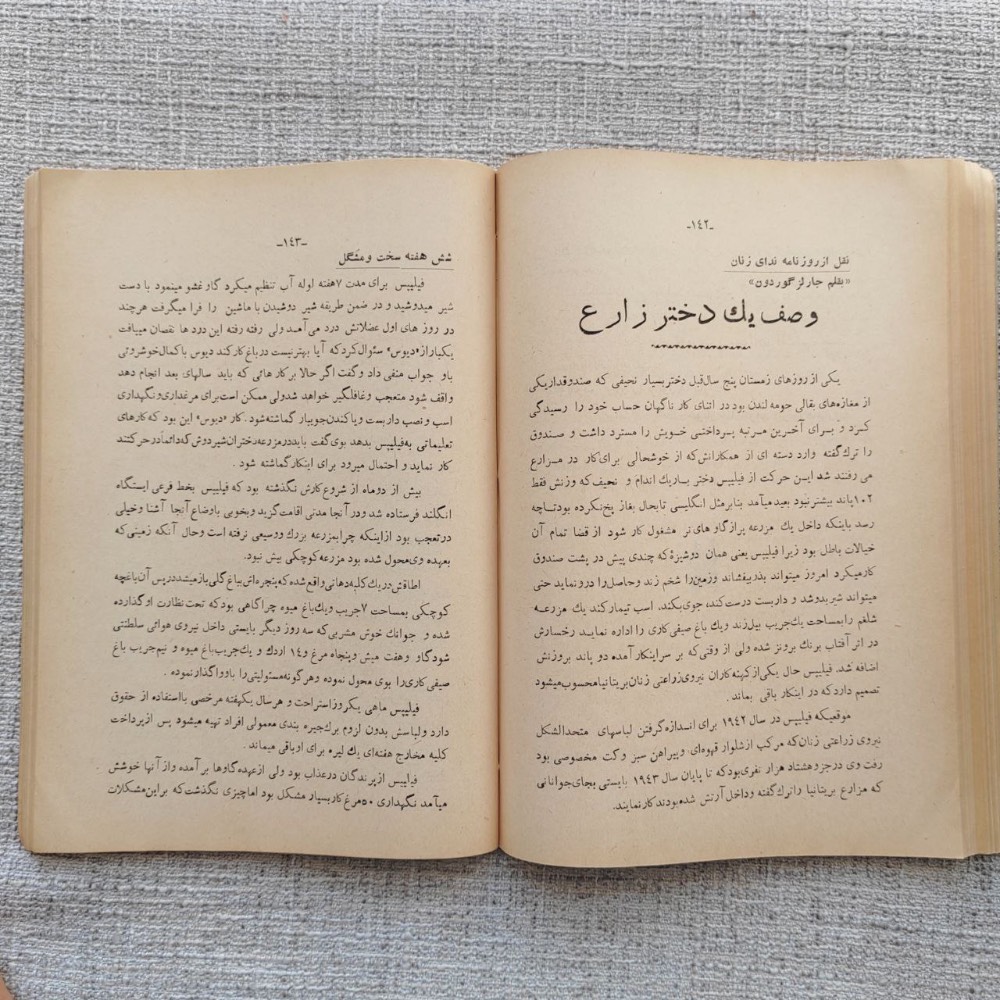 -۱٤۲-
نقل از روزنامه ندای زنان
«بقلم چارلز گوردون»
وصف یك دختر زارع
یکی از روزهای زمستان پنج سال قبل دختر بسیار نحیفی که صندوقدار یکی
از مغازه‌های بقالی حومه لندن بود در اثنای کار ناگهان حساب خود را رسیدگی
کرد و بـرای آخرین مرتبه پـرداختی خـویش را مسترد داشت و صندوق
را ترك گفته وارد دسته ای از همکارانش که از خوشحالی برای کار در مـزارع
می رفتند شد این حرکت از فیلیپس دختر بـاریك اندام و نحیف که وزنش فقط
۱۰۲ پاند بیشتر نبود بعید میآمد بنا بر مثل انگلیسی تا بحال بغاز پخ نکرده بود تا چه
رسد باینکه داخل یك مزرعه پر از گاوهای نر مشغول کار شود از قضا تمام آن
خیالات باطل بود زیرا فیلیپس یعنی همان دوشیزۀ که چندی پیش در پشت صندوق
کار میکرد امروز میتواند بذر بیفشاند و زمین را شخم زند و حاصل را درو نماید حتی
میتواند شیر بدوشد و داربست درست کند، جوی بکند، اسب تیمار کند یك مزرعـه
شلغم را بمساحت یك جریب بیل زند و یك باغ صیفی کاری را اداره نمایـد رخسارش
در اثر آفتاب برنك برونز شده ولی از وقتی که بر سر اینکار آمده دو پاند بروزنش
اضافه شد، فیلیپس حال یکی از کهنه کاران نیروی زراعتی زنان بریتانیا محسوب میشود
تصمیم دارد که در اینکار باقی بماند.
موقعیکه فیلیپس در سال ۱۹٤۲ برای انـدازه گرفتن لباسهای متحدالشکل
نیروی زراعتی زنان که مرکب از شلوار قهوه‌ای و پیراهن سبز و کت مخصوصی بود
رفت وی در جزو هشتاد هزار نفری بود که تا پایان سال ۱۹٤۳ بایستی بجای جوانانی
که مزارع بریتانیا را ترك گفته و داخل آرتش شده بودند کار نمایند.
-۱٤۳-
شش هفته سخت و مشگل
فیلیپس برای مدت ۷ هفته لوله آب تنظیم میکرد گاو غشو مینمود با دست
شیر میدوشید و در ضمن طریقه شیر دوشیدن با ماشین را فرا میگرفت هر چند
در روز های اول عضلانش درد می‌آمـد ولی رفته رفته این دردها نقصان مییافت
یکبار از «دیوس» سئوال کرد که آیا بهتر نیست در باغ کار کند دیوس با کمال خوشروئی
باو جواب منفی داد و گفت اگر حالا بر کار هائی که باید سالهای بعد انجام دهد
واقف شود متعجب و غافلگیر خواهد شد ولی ممکن است برای مرغداری و نگهداری
اسب و نصب داربست و یا کندن جویبار گماشته شود. کار «دیوس» این بود که کارهای
تعلیماتی به فیلیپس بدهد بوی گفت باید در مزرعه دختران شیر دوش که دائماً در حرکتند
کار نماید و احتمال میرود برای اینکار گماشته شود.
بیش از دو ماه از شروع کارش نگذشته بود که فیلیپس بخط فرعی ایستگاه
انگلند فرستاده شد و در آنجا مدتی اقامت گزید و بخوبی باوضاع آنجا آشنا و خیلی
در تعجب بود از اینکه چرا بمزرعه بزرك و وسیعی نرفته است و حال آنکه زمینی که
بعهده وی محول شده بود مزرعه کوچکی بیش نبود.
اطاقش در یك کلبه دهاتی واقع شده که پنجره اش بباغ گلی باز میشد در پس آن باغچه
کوچکی بمساحت ۷ جریب و یك باغ میوه چراگاهی بود که تحت نظارت او گذارده
شده و جوانك خوش مشربی که سه روز دیگر بایستی داخل نیروی هوائی سلطنتی
شود گاو و هفت میش و پنجاه مرغ و ۱٤ اردك و یك جریب باغ میوه و نیم جریب باغ
صیفی کاری را بوی محول نموده و هر گونه مسئولیتی را باو واگذار نموده.
فیلیپس ماهی یکروز استراحت و هر سال یکهفته مرخصی با استفاده از حقوق
دارد و لباسش بدون لزوم برك جیره بندی معمولی افراد تهیه میشود پس از پرداخت
کلیه مخارج هفته‌ای یك لیره برای او باقی میماند.
فرایپس از پرندگان در عذاب بود ولی از عهده گاوها بر آمده و از آنها خوشش
میآمد نگهداری ۵۰ مرغ کار بسیار مشکل بود اما چیزی نگذشت که بر این مشکلات